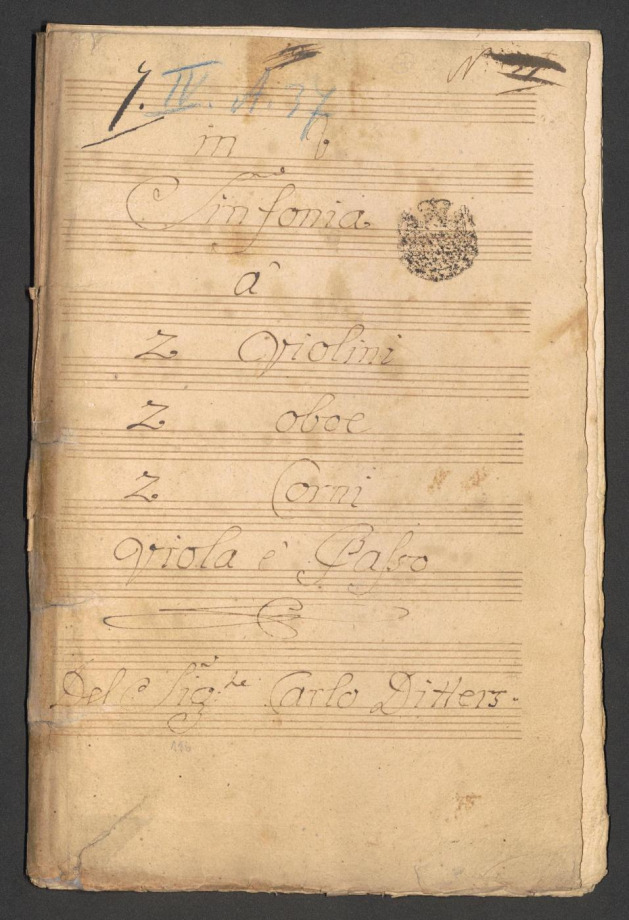 7. IV. A. 37
N
in b
Sinfonia
â
2 Violini
2 oboe
2 Corni
Viola è Basso
Del Sig̃:re Carlo Ditters.